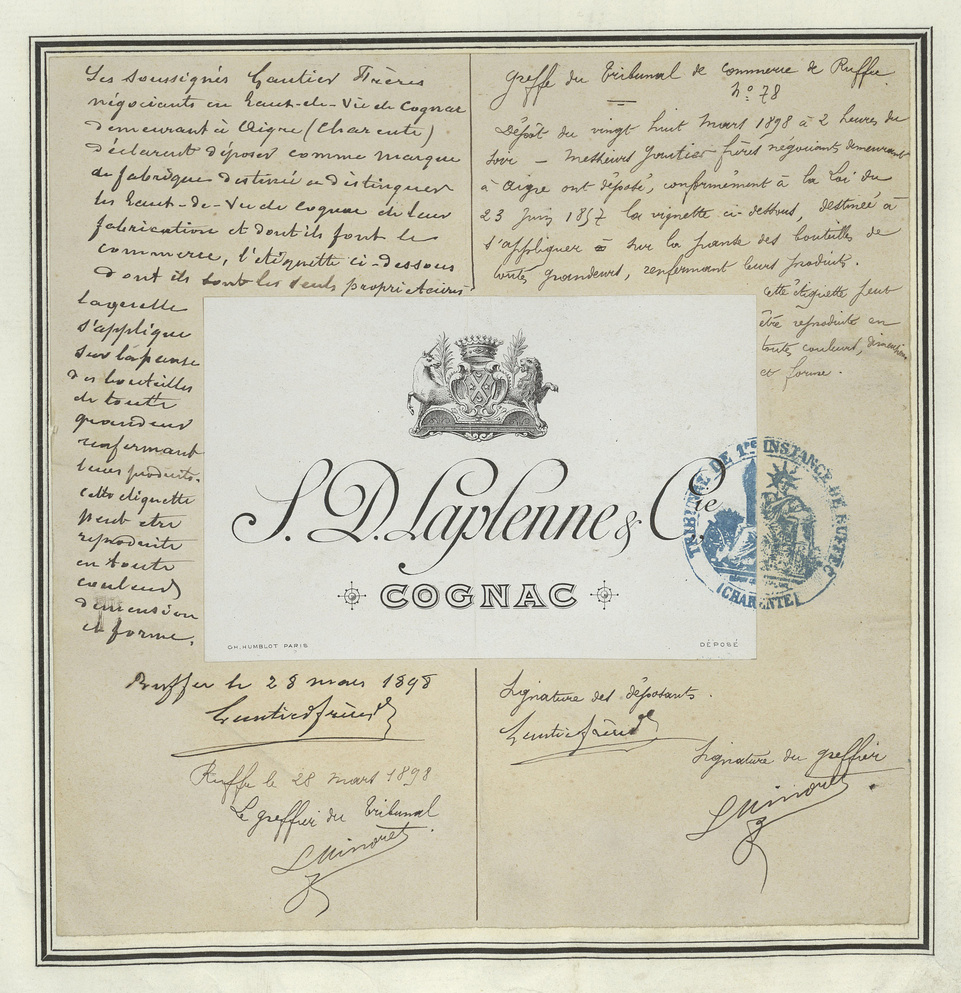 Les soussignés Gautier Frères
négociants en Eaux-de-Vie de Cognac
demeurant à Aigre (Charente)
déclarent déposer comme marque
de fabrique destinée à distinguer
les Eaux-de-Vie de Cognac de leur
fabrication et dont ils font le
commerce, l'étiquette ci-dessous
dont ils sont les seuls propriétaires
laquelle
s'applique
sur la panse
des bouteilles
de toute
grandeur
renfermant
leurs produits.
cette étiquette
peut être
reproduite
en toute
couleur,
dimension
et forme.
Ruffec le 28 mars 1898
Gautier frères
Ruffec le 28 mars 1898
Le greffier du Tribunal
LMinoret
Greffe du Tribunal de commerce de Ruffec
No 78
Dépôt du vingt huit Mars 1898 à 2 heures du
soir – Messieurs Gautier frères négociants demeurant
à Aigre ont déposé, conformément à la Loi du
23 Juin 1857 la vignette ci-dessous, destinée à
s'appliquer sur la panse des bouteilles de
toutes grandeurs, renfermant leurs produits.
cette étiquette peut
être reproduite en
toutes couleurs, dimension
et forme.
S. D. Laplenne & Cie
COGNAC
CH. HUMBLOT PARIS
DÉPOSÉ
TRIBUNAL DE 1RE INSTANCE DE RUFFEC
(CHARENTE)
Signature des déposants.
Gautier frères
Signature du greffier
LMinoret